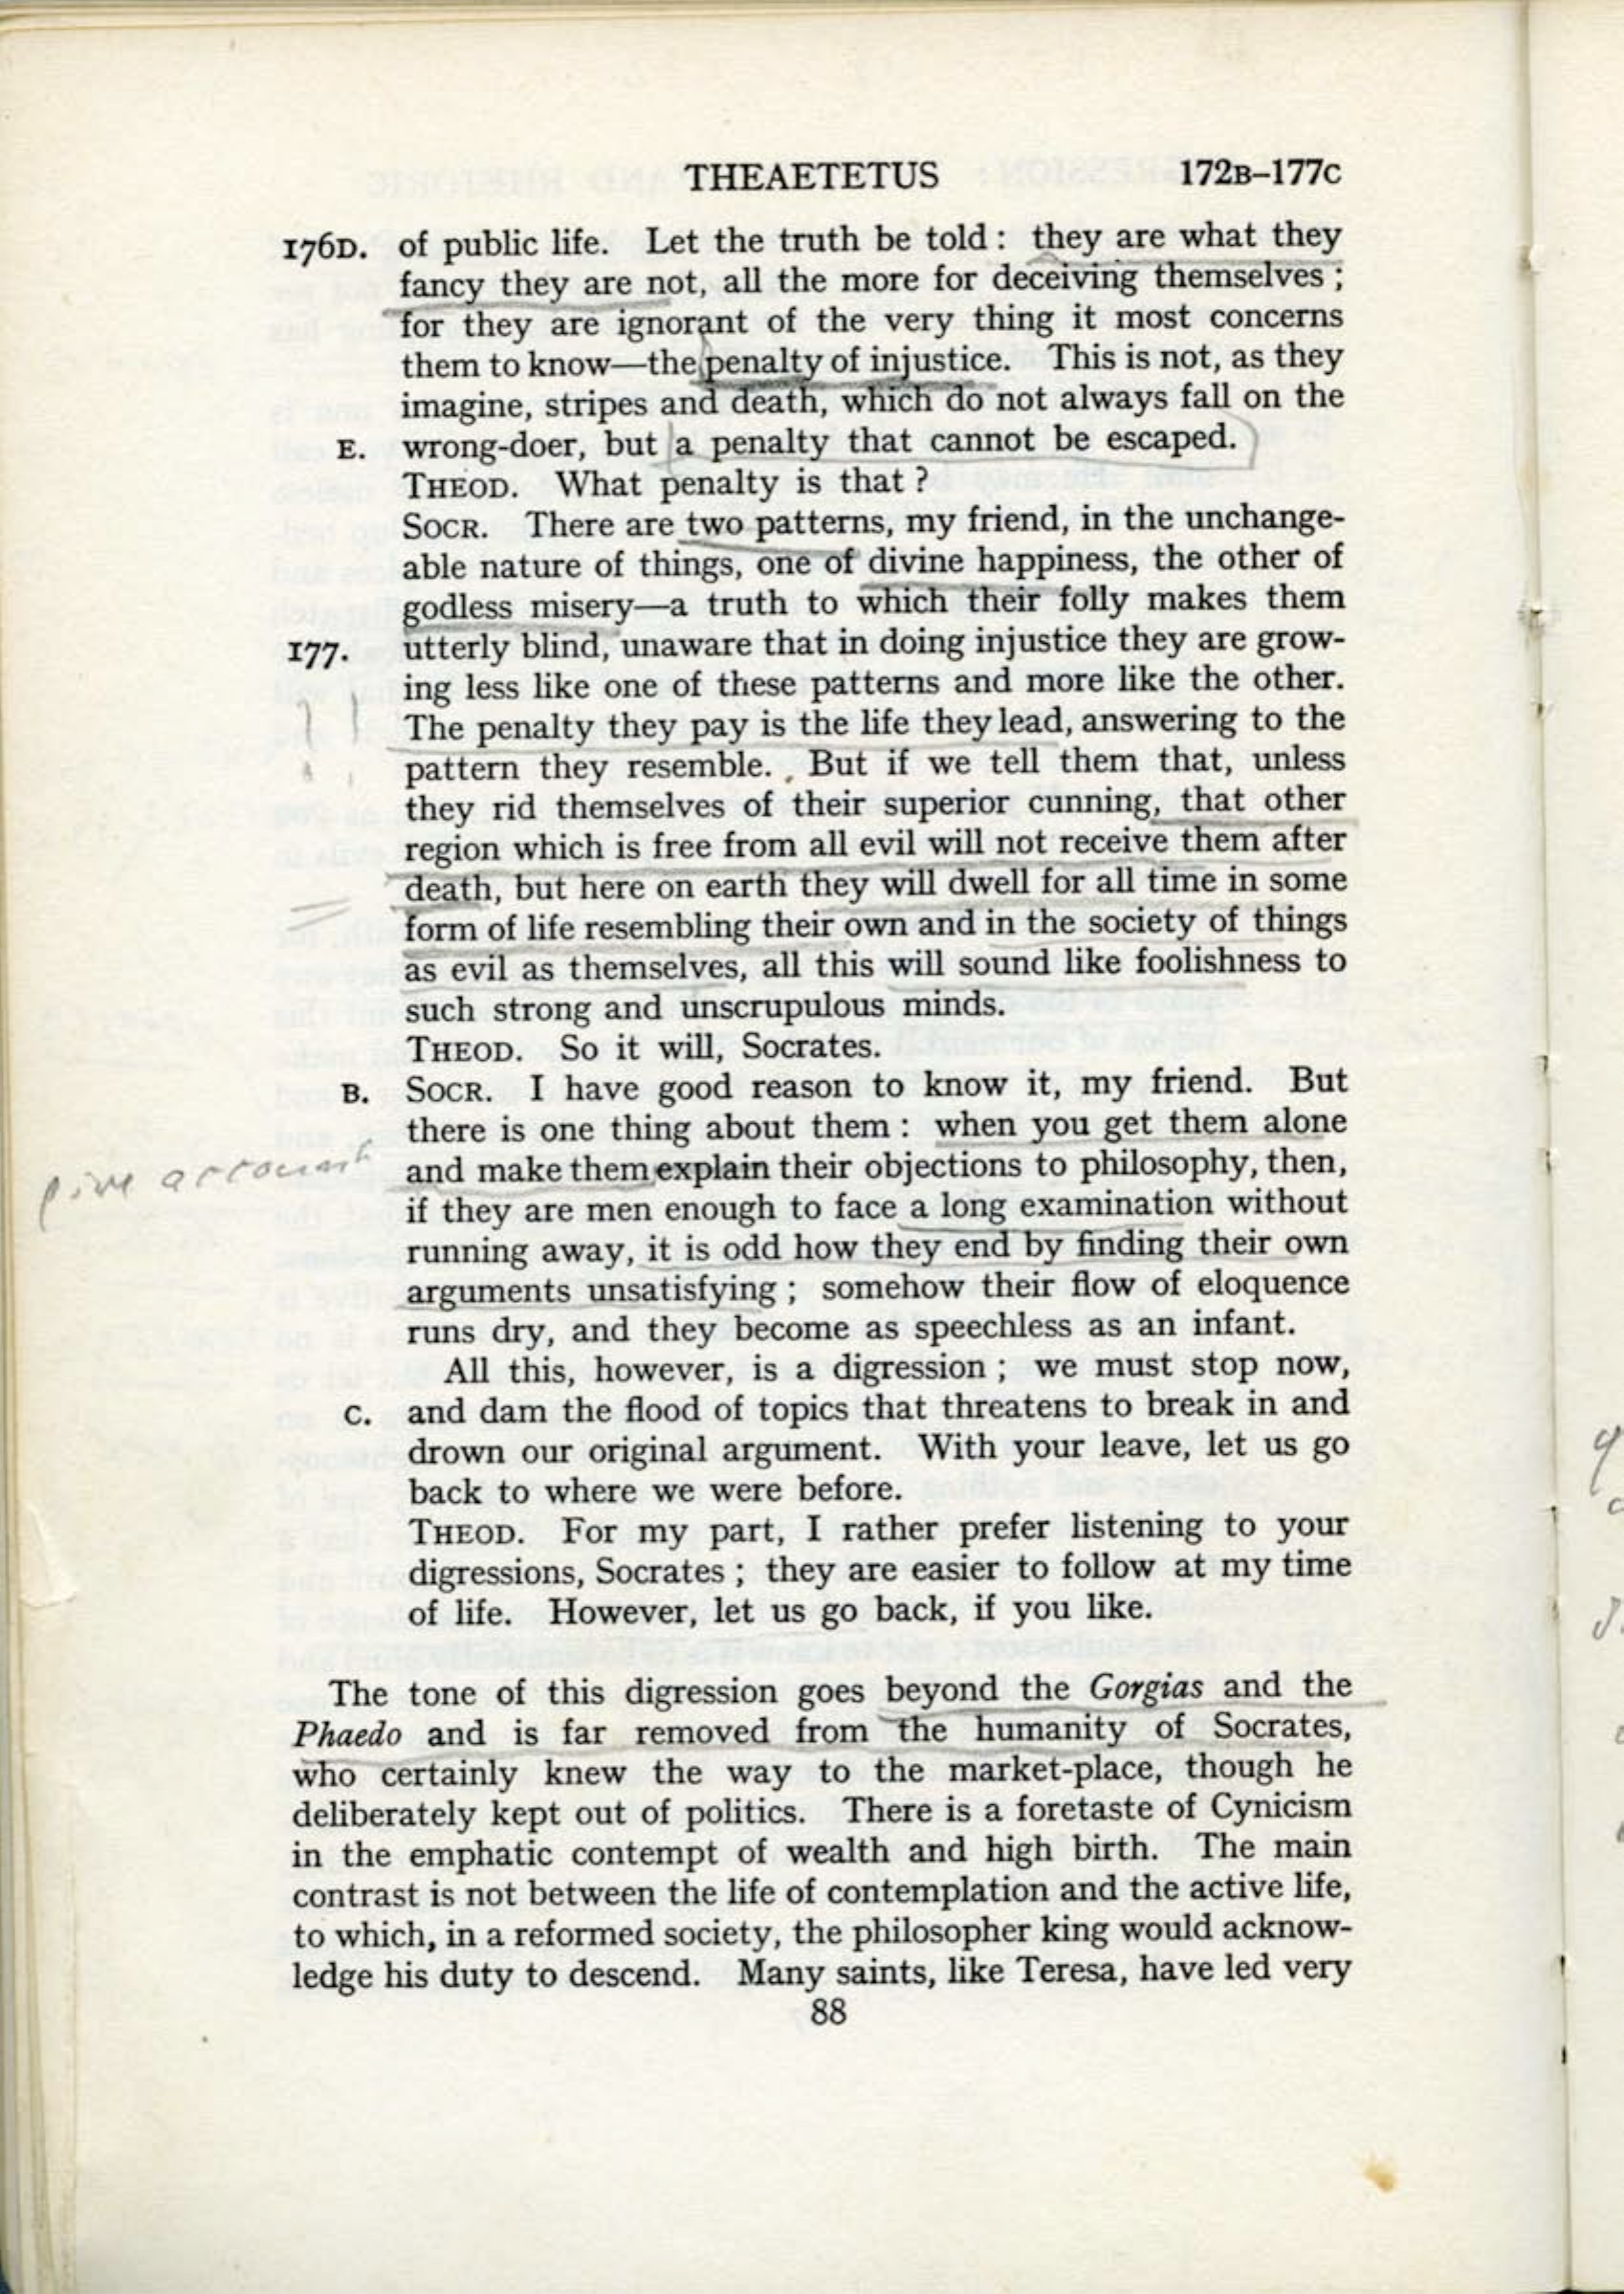 THEAETETUS 172B–177C
176D. of public life. Let the truth be told : they are what they
fancy they are not, all the more for deceiving themselves ;
for they are ignorant of the very thing it most concerns
them to know—the penalty of injustice. This is not, as they
imagine, stripes and death, which do not always fall on the
E. wrong-doer, but a penalty that cannot be escaped.
THEOD. What penalty is that ?
SOCR. There are two patterns, my friend, in the unchange-
able nature of things, one of divine happiness, the other of
godless misery—a truth to which their folly makes them
177. utterly blind, unaware that in doing injustice they are grow-
ing less like one of these patterns and more like the other.
The penalty they pay is the life they lead, answering to the
pattern they resemble. But if we tell them that, unless
they rid themselves of their superior cunning, that other
region which is free from all evil will not receive them after
death, but here on earth they will dwell for all time in some
form of life resembling their own and in the society of things
as evil as themselves, all this will sound like foolishness to
such strong and unscrupulous minds.
THEOD. So it will, Socrates.
B. SOCR. I have good reason to know it, my friend. But
there is one thing about them : when you get them alone
give account
and make them explain their objections to philosophy, then,
if they are men enough to face a long examination without
running away, it is odd how they end by finding their own
arguments unsatisfying ; somehow their flow of eloquence
runs dry, and they become as speechless as an infant.
All this, however, is a digression ; we must stop now,
C. and dam the flood of topics that threatens to break in and
drown our original argument. With your leave, let us go
back to where we were before.
THEOD. For my part, I rather prefer listening to your
digressions, Socrates ; they are easier to follow at my time
of life. However, let us go back, if you like.
The tone of this digression goes beyond the Gorgias and the
Phaedo and is far removed from the humanity of Socrates,
who certainly knew the way to the market-place, though he
deliberately kept out of politics. There is a foretaste of Cynicism
in the emphatic contempt of wealth and high birth. The main
contrast is not between the life of contemplation and the active life,
to which, in a reformed society, the philosopher king would acknow-
ledge his duty to descend. Many saints, like Teresa, have led very
88